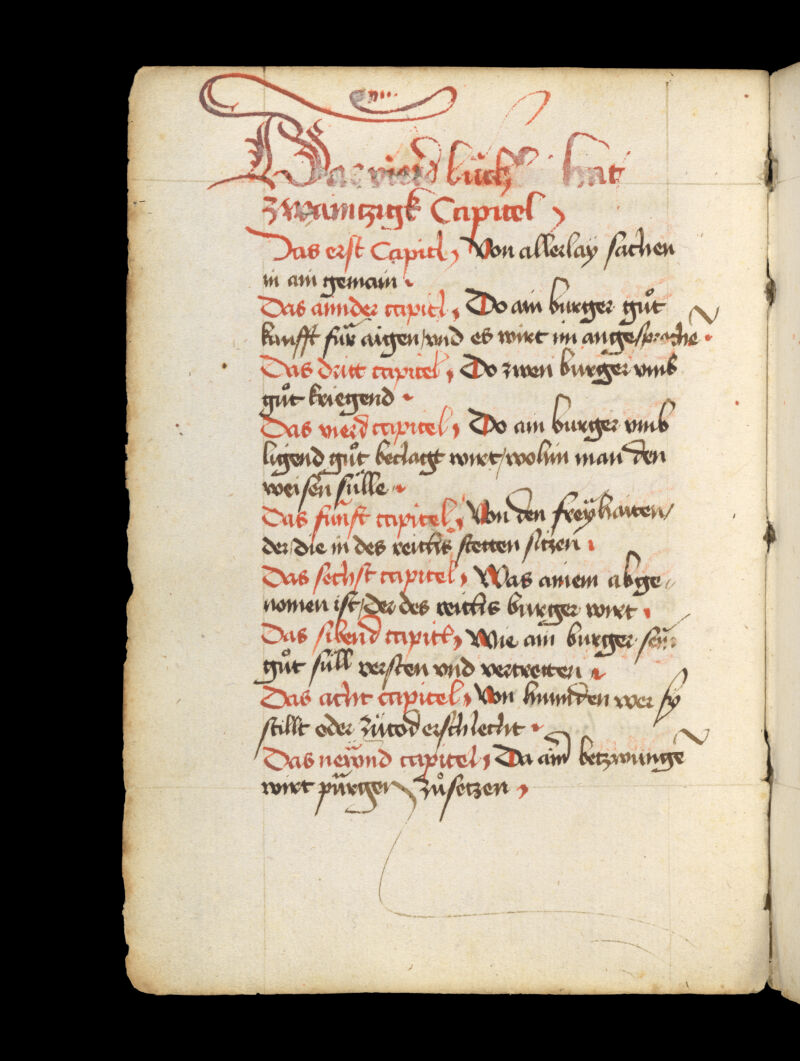 Das vierd bůch hat
zwaintzigk Capitel
Das erst Capitl, Von allerlay sachen
in ain gemain
Das annder capitl, Do ain burger gůt
kaufft für aigen/vnd es wirt im angesproche
Das dritt capitel, Do zwen burger vmb
gůt kriegend
Das vierd capitel, Do ain burger vmb
ligend gůt beclagt wirt/wohin man den
weisen sülle
Das fünft capitel, Von den freÿhaiten/
der/die in des reichs stetten sitzen
Das sechst capitel, Was ainem abge„
nomen ist/der des reichs burger wirt
Das sibend capitl, Wie ain burger sein
gůt süll versten vnd vertretten
Das acht capitel, Von hunnden wer sy
stillt oder zůtod erschlecht
Das newnd capitel, Da ainr betzwunge
wirt pürgen zůsetzen